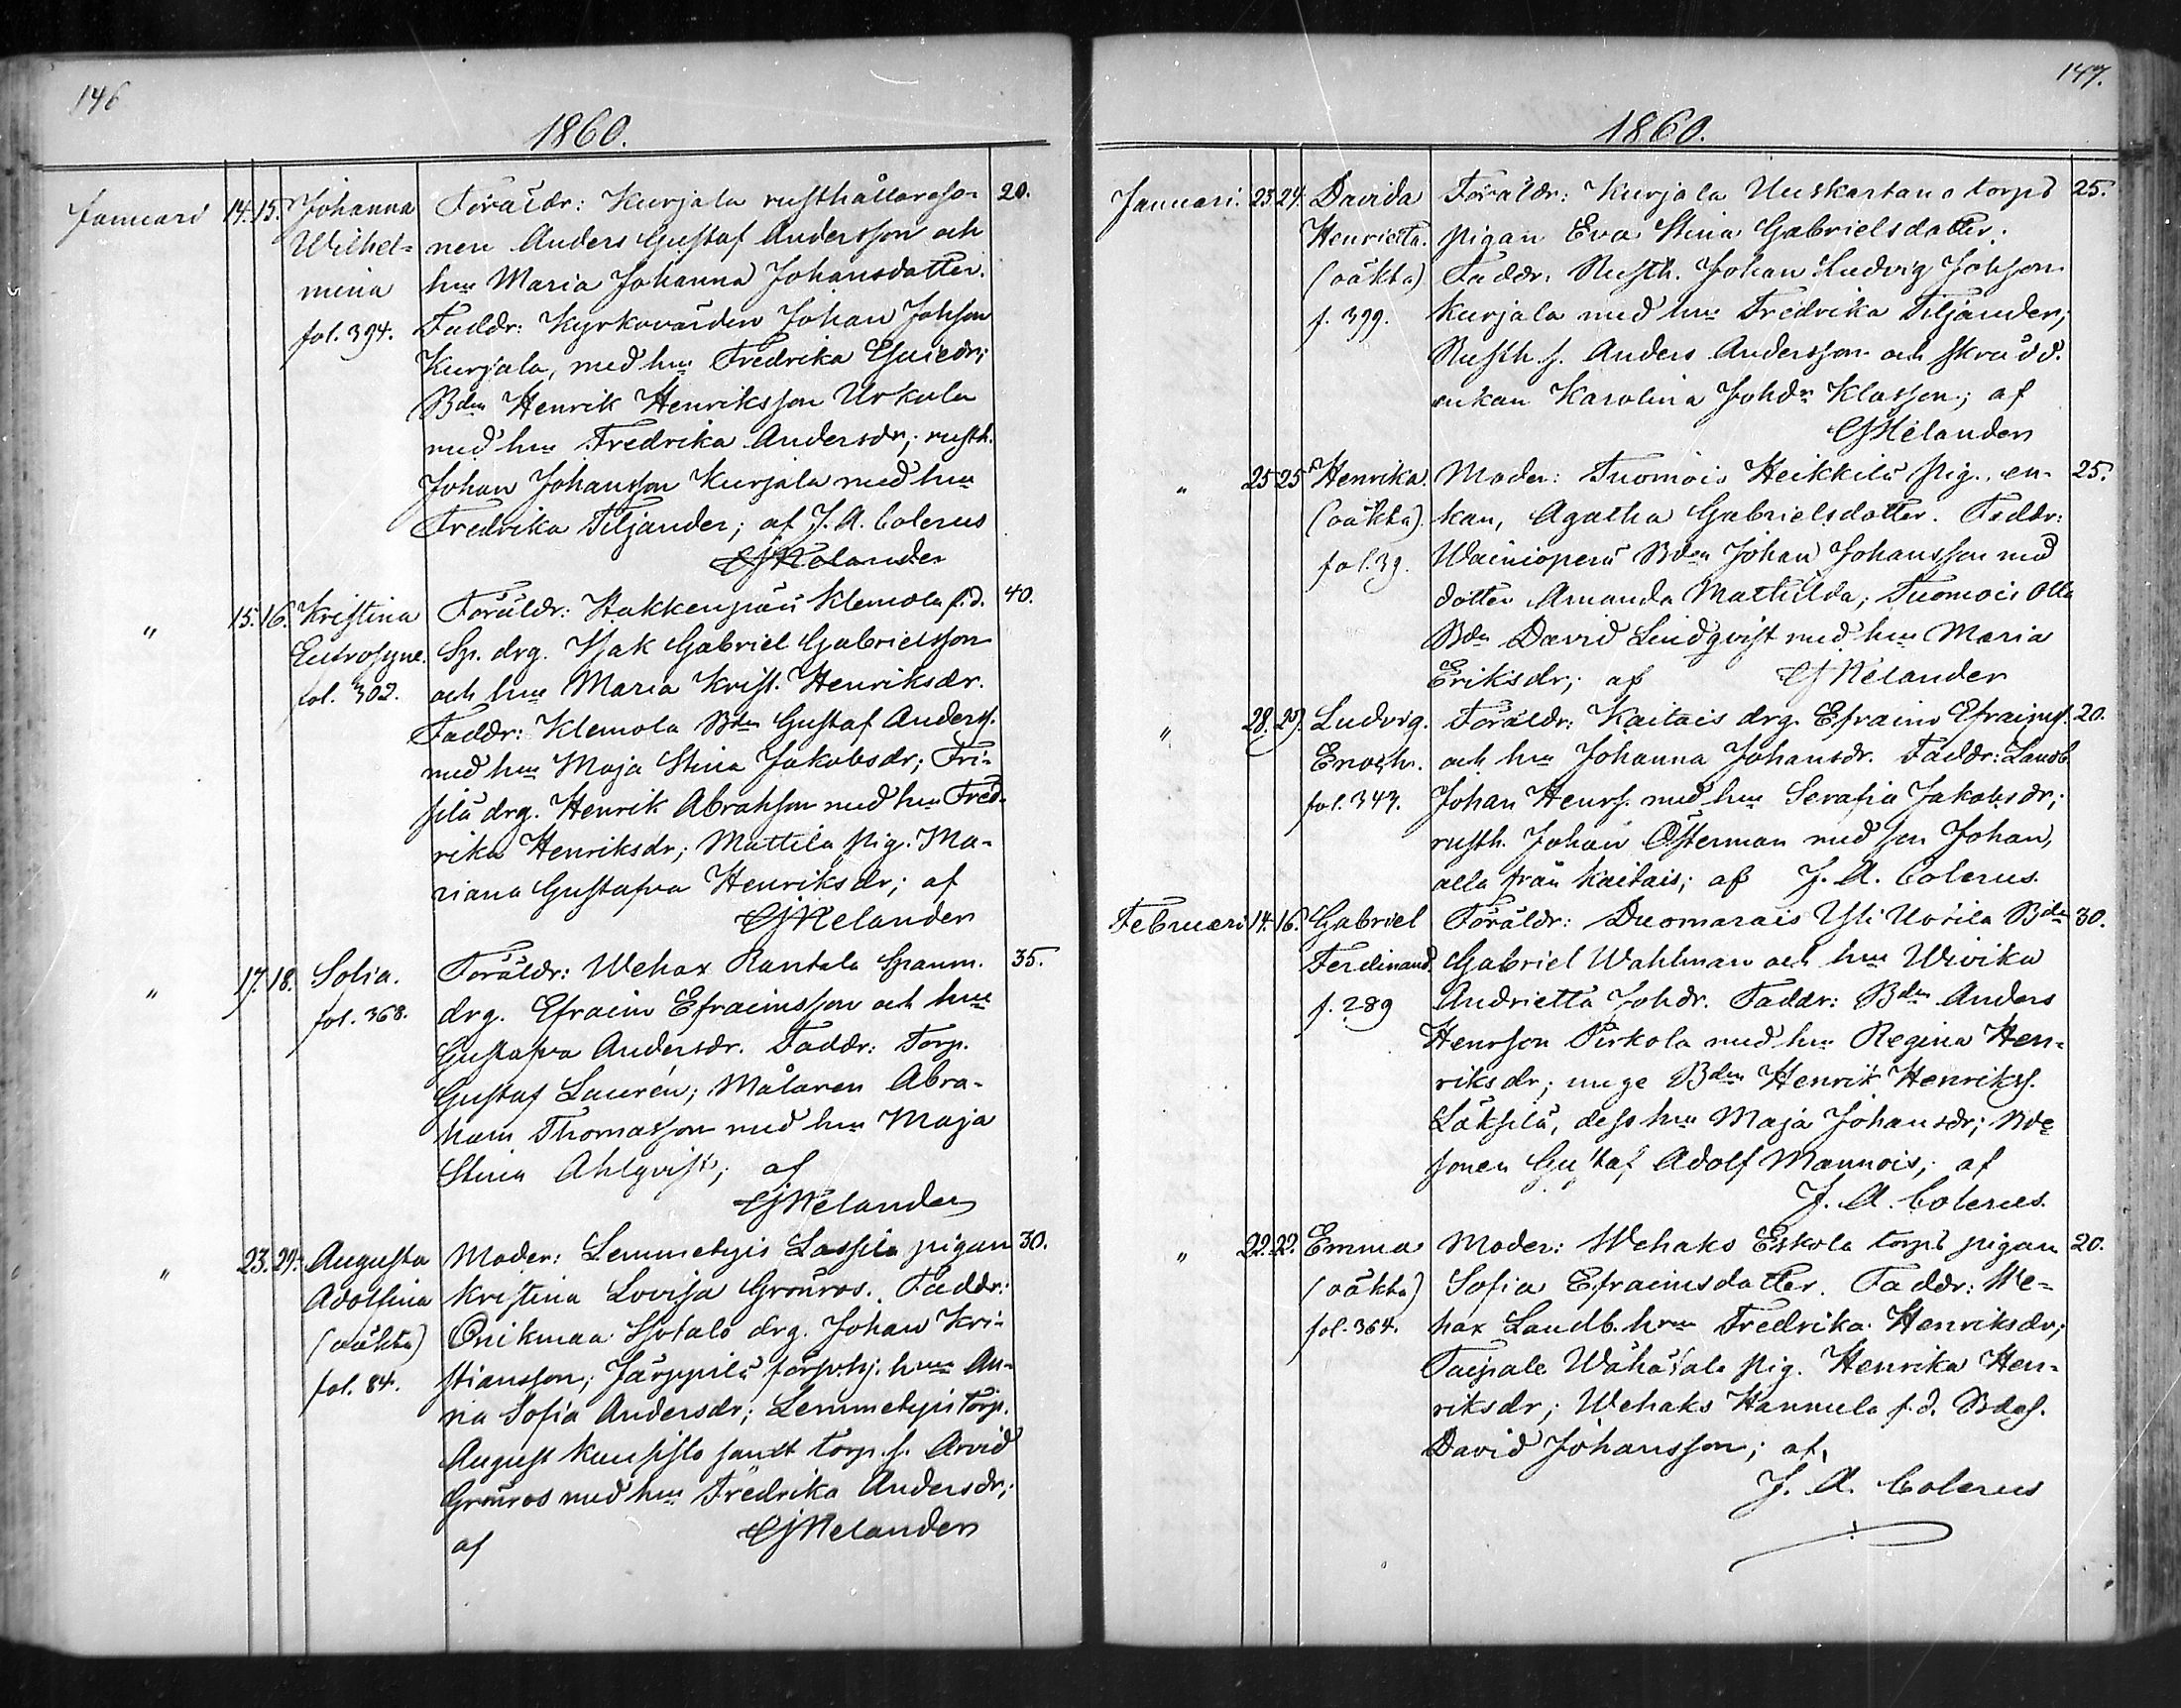 146
1860.
Januari 14. 15. Johanna Föräldr: Kurjala rusthållareso- 20.
Wilhel- nen Anders Gustaf Andersson och
mina hu Maria Johanna Johansdotter.
fol. 394. Faddr: Kyrkovärden Johan Johsson
Kurjala, med hu Fredrika
Bdn Henrik Henriksson Urkola
med hu Fredrika Andersdr; rusth.
Johan Johansson Kurjala med hu
Fredrika Tiljander; af J. A. Colerus
CJNelander
" 15. 16. Kristina Föräldr: Hakkenpää Klemola f. d. 40.
Eufrosyne. Sp. drg. Isak Gabriel Gabrielsson
fol. 302. och hu Maria Krist. Henriksdr.
Faddr: Klemola Bdn Gustaf Anderss.
med hu Maja Stina Jakobsdr; Fri-
silä drg. Henrik Abrahsson med hu Fred-
rika Henriksdr; Mattila pig. Ma-
riana Gustafva Henriksdr; af
CJNelander
" 17. 18. Sofia. Föräldr: Wehax Rantala Spanm. 35.
fol. 368. drg. Efraim Efraimsson och hu
Gustafva Andersdr. Faddr: Torp.
Gustaf Laurén; Målaren Abra-
ham Thomasson med hu Maja
Stina Ahlqvist; af
CJNelander
" 23. 29. Augusta Moder: Lemmetyis Lassila pigan 30.
Adolfina Kristina Lovisa Grönros. Faddr:
(oäkta) Onikmaa Isotalo drg. Johan Kri-
fol. 84. stiansson; Järppilä hu An-
na Sofia Andersdr; Lemmetyis torp.
August Kuusisto samt torp. s. Arvid
Grönros med hu Fredrika Andersdr;
af CJNelander
147.
1860.
Januari. 23. 24. Davida Föräldr: Kurjala Uuskartano torps 25.
Henrietta. pigan Eva Stina Gabrielsdotter.
(oäkta) Faddr. Rusth. Johan Ludvig Johsson
f. 399. Kurjala med hu Fredrika Tiljander;
Rusth s. Anders Andersson och skrädd.
enkan Karolina Johdr Klasson; af
CJNelander
" 25 25 Henrika. Moder: Tuomois Heikkilä pig. en- 25.
(oäkta). kan, Agatha Gabrielsdotter. Faddr:
fol. 39. Wainioperä Bdn Johan Johansson med
dotter Amanda Mathilda; Tuomois Olla
Bdn David Lindqvist med hu Maria
Eriksdr; af CJNelander
" 28. 29. Ludvig. Föräldr: Kaitais drg. Efraim Efraimss. 20.
Enoch. och hu Johanna Johansdr. Faddr: Landb.
fol. 347. Johan Henrs. med hu Serafia Jakobsdr;
rusth. Johan Österman med son Johan,
alla från Kaitais; af J. A. Colerus.
Februari 14. 16. Gabriel Föräldr: Duomarais Yli Uotila Bdn 30.
Ferdinand. Gabriel Wahlman och hu Wivika
f. 289 Andrietta Johdr. Faddr: Bdn Anders
Henrsson Pirkola med hu Regina Hen-
riksdr; unge Bdn Henrik Henrikss.
Läksilä, dess hu Maja Johansdr; Bde
sonen Gustaf Adolf Mannois; af
J. A. Colerus.
" 22. 22. Emma Moder: Wehaks Eskola torps pigan 20.
(oäkta) Sofia Efraimsdotter. Faddr: We-
fol. 364. hax Landb. hu Fredrika Henriksdr;
Taipale Wähätalo pig. Henrika Hen-
riksdr; Wehaks Hannula f. d. Bdes.
David Johansson; af,
J. A. Colerus